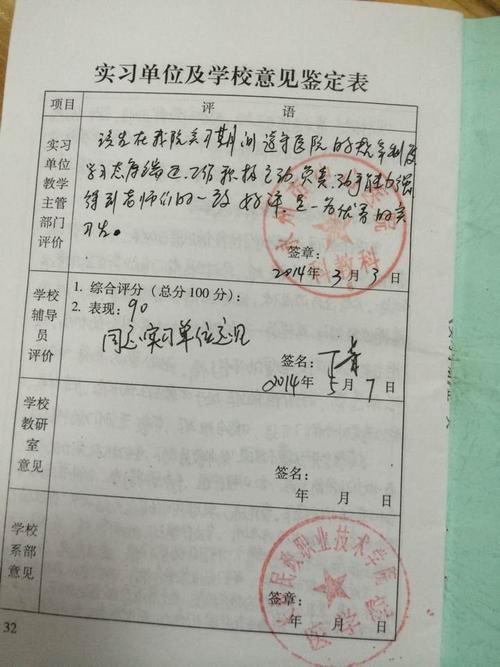 实习单位及学校意见鉴定表
项目 评 语
实习
单位
教学
主管
部门
评价
该生在我院实习期间遵守医院的规章制度
学习态度端正,工作积极主动负责,动手能力强
得到老师们的一致好评,是一名优秀的实
习生。
签章:
2014年3月3日
科教科
学校
辅导
员
评价
1. 综合评分(总分100分):
2. 表现: 90
同意实习单位意见
签名:
2014年5月7日
学校
教研
室意见
签名:
年 月 日
学校
系部
意见
民族职业技术学院
医学院
签章:
年 月 日
32